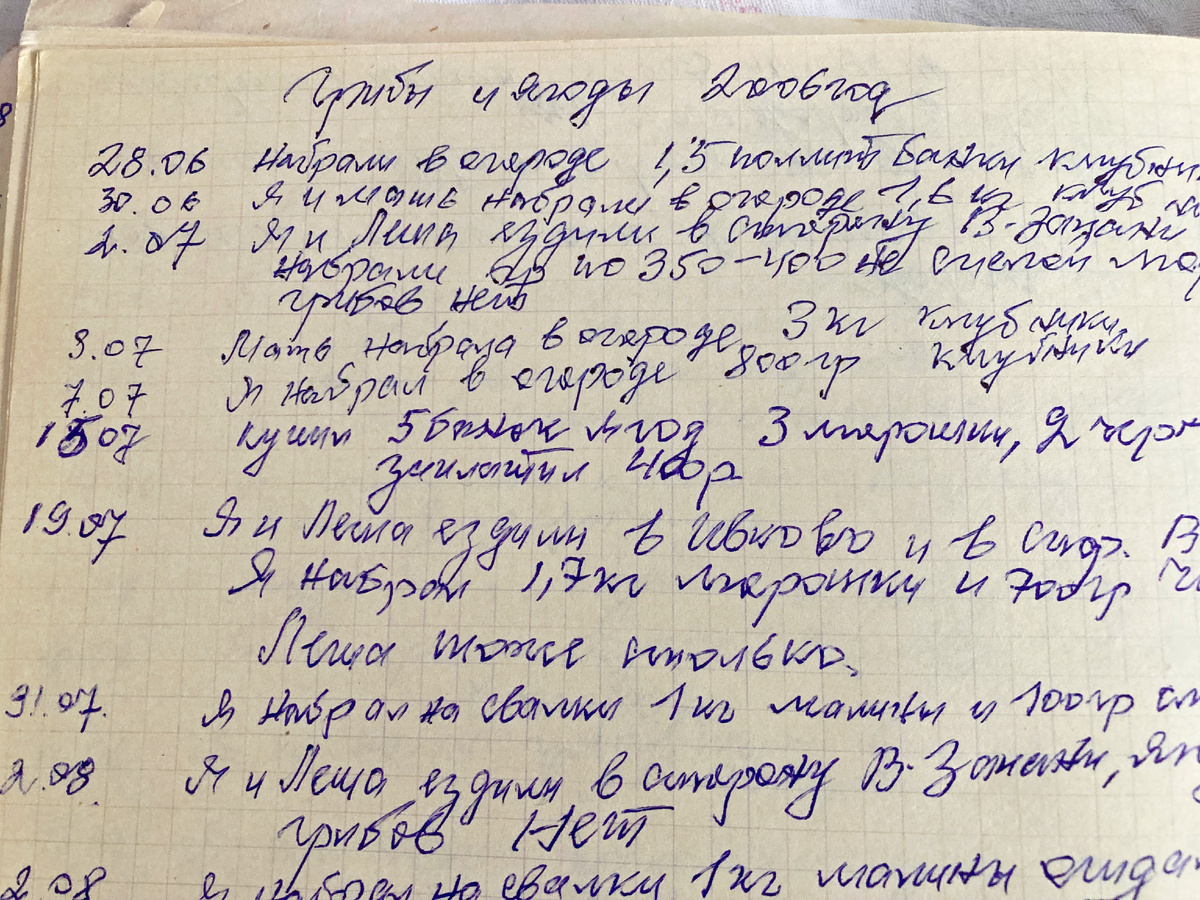 Грибы и ягоды 2006 год
28.06 Набрали в огороде 1,5 поллит банки клубни
30.06 Я и мать набрали в огороде 1, кг клуб
2.07 Я и Леша ездили в сторону В-Зажани
набрали по 350-400 не спелой мор
грибов нет
3.07 Мать набрала в огороде 3 кг клубники
7.07 Я набрал в огороде 800гр клубники
15 07 купил 5 банок ягод 3 морошки, 2 черн
заплатил 400р
19.07 Я и Леша ездили в Ивково и в стор. В
Я набрал 1,7кг морошки и 700гр че
Леша тоже столько.
31.07. Я набрал на свалки 1 кг малины и 100гр см
2.08. Я и Леша ездили в сторону В-Зажани, яг
грибов Нет
2.08 Я набрал на свалки 1 кг малины